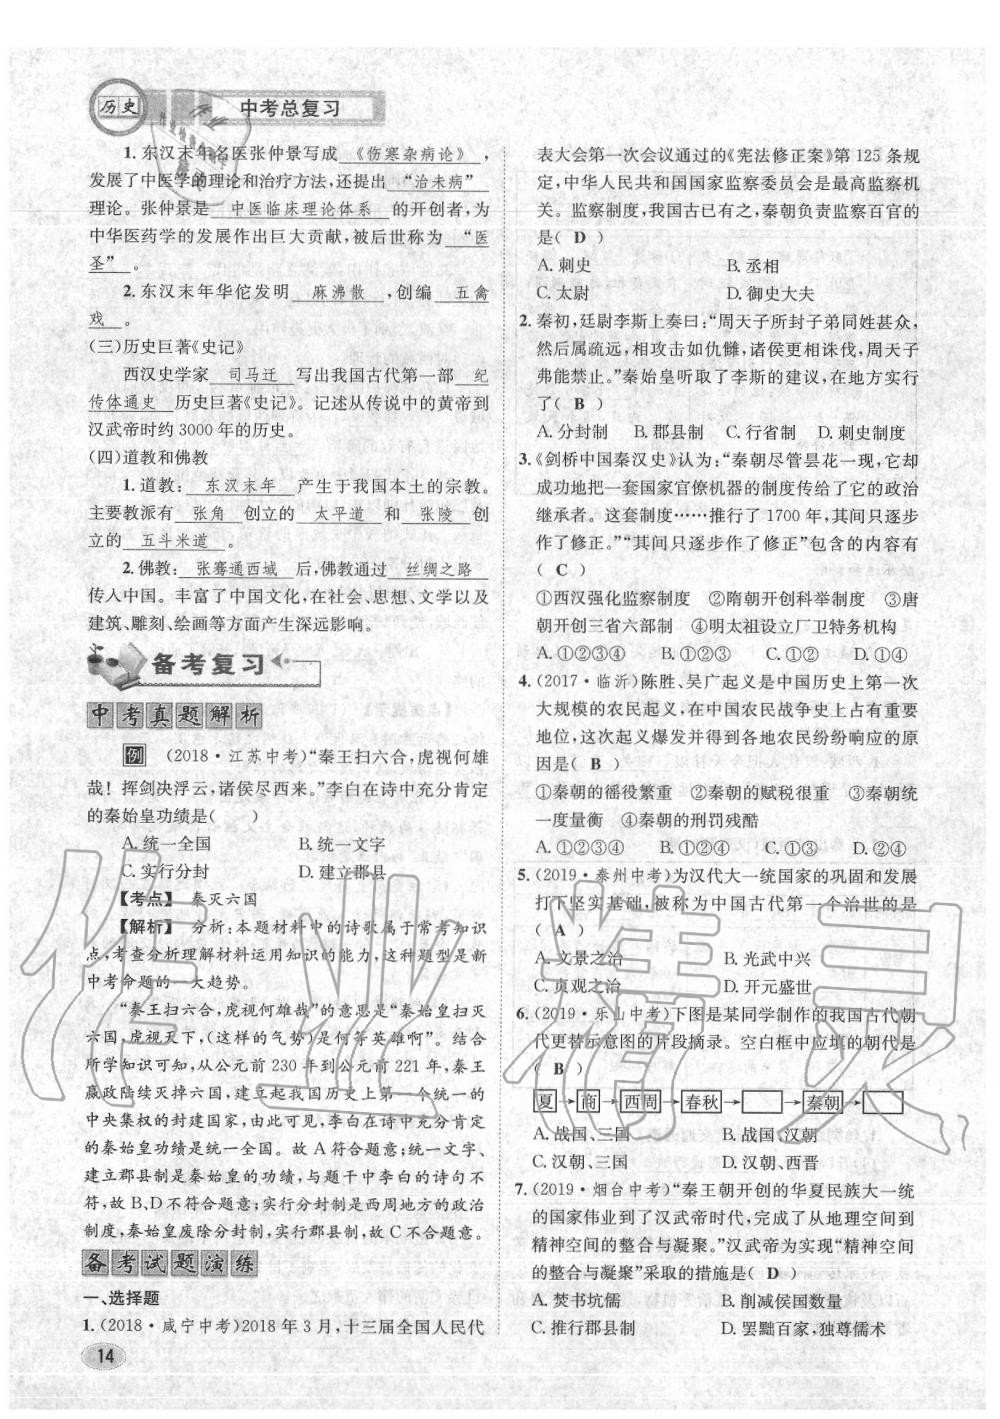 历史 中考总复习
1. 东汉末年名医张仲景写成《伤寒杂病论》,
发展了中医学的理论和治疗方法,还提出“治未病”
理论。张仲景是 中医临床理论体系 的开创者,为
中华医药学的发展作出巨大贡献,被后世称为“医
圣”。
2. 东汉末年华佗发明 麻沸散 ,创编 五禽
戏 。
(三)历史巨著《史记》
西汉史学家 司马迁 写出我国古代第一部 纪
传体通史 历史巨著《史记》。记述从传说中的黄帝到
汉武帝时约 3000 年的历史。
(四)道教和佛教
1. 道教: 东汉末年 产生于我国本土的宗教。
主要教派有 张角 创立的 太平道 和 张陵 创
立的 五斗米道 。
2. 佛教: 张骞通西域 后,佛教通过 丝绸之路
传人中国。丰富了中国文化,在社会、思想、文学以及
建筑、雕刻、绘画等方面产生深远影响。
备考复习
中考真题解析
例 (2018·江苏中考)“秦王扫六合,虎视何雄
哉! 挥剑决浮云,诸侯尽西来。”李白在诗中充分肯定
的秦始皇功绩是( )
A. 统一全国 B. 统一文字
C. 实行分封 D. 建立郡县
【考点】 秦灭六国
【解析】 分析:本题材料中的诗歌属于常考知识
点,考查分析理解材料运用知识的能力,这种题型是新
中考命题的一大趋势。
“秦王扫六合,虎视何雄哉”的意思是“秦始皇扫灭
六国,虎视天下,(这样的气势)是何等英雄啊”。结合
所学知识可知,从公元前 230 年到公元前 221 年,秦王
嬴政陆续灭掉六国,建立起我国历史上第一个统一的
中央集权的封建国家,由此可见,李白在诗中充分肯定
秦王功绩是统一全国。故 A 符合题意;统一文字、
建立郡县制是秦始皇的功绩,与题干中李白的诗句不
符,故 B、D 不符合题意;实行分封制是西周地方的政治
制度,秦始皇废除分封制,实行郡县制,故 C 不合题意。
备考试题演练
一、选择题
1. (2018·咸宁中考)2018 年 3 月,十三届全国人民代
14
表大会第一次会议通过的《宪法修正案》第 125 条规
定,中华人民共和国国家监察委员会是最高监察机
关。监察制度,我国古已有之,秦朝负责监察百官的
是( D )
A. 刺史 B. 丞相
C. 太尉 D. 御史大夫
2. 秦初,廷尉李斯上奏曰:“周天子所封子弟同姓甚众,
然后属疏远,相攻击如仇雠,诸侯更相诛伐,周天子
弗能禁止。”秦始皇听取了李斯的建议,在地方实行
了( B )
A. 分封制 B. 郡县制 C. 行省制 D. 刺史制度
3. 《剑桥中国秦汉史》认为:“秦朝尽管昙花一现,它却
成功地把一套国家官僚机器的制度传给了它的政治
继承者。这套制度……推行了 1700 年,其间只逐步
作了修正。”“其间只逐步作了修正”包含的内容有
( C )
①西汉强化监察制度 ②隋朝开创科举制度 ③唐
朝开创三省六部制 ④明太祖设立厂卫特务机构
A. ①②③④ B. ①②③ C. ①② D. ①④
4. (2017·临沂)陈胜、吴广起义是中国历史上第一次
大规模的农民起义,在中国农民战争史上占有重要
地位,这次起义爆发并得到各地农民纷纷响应的原
因是( B )
①秦朝的徭役繁重 ②秦朝的赋税很重 ③秦朝统
一度量衡 ④秦朝的刑罚残酷
A. ①②③④ B. ①②④ C. ①③ D. ②④
5. (2019·泰州中考)为汉代大一统国家的巩固和发展
打下坚实基础,被称为中国古代第一个治世的是
( A )
A. 文景之治 B. 光武中兴
C. 贞观之治 D. 开元盛世
6. (2019·乐山中考)下图是某同学制作的我国古代朝
代更替示意图的片段摘录。空白框中应填的朝代是
( B )
夏→商→西周→春秋→ →秦朝→
A. 战国、三国 B. 战国、汉朝
C. 汉朝、三国 D. 汉朝、西晋
7. (2019·烟台中考)“秦王朝开创的华夏民族大一统
的国家伟业到了汉武帝时代,完成了从地理空间到
精神空间的整合与凝聚。”汉武帝为实现“精神空间
的整合与凝聚”采取的措施是( D )
A. 焚书坑儒 B. 削减侯国数量
C. 推行郡县制 D. 罢黜百家,独尊儒术
作业精灵